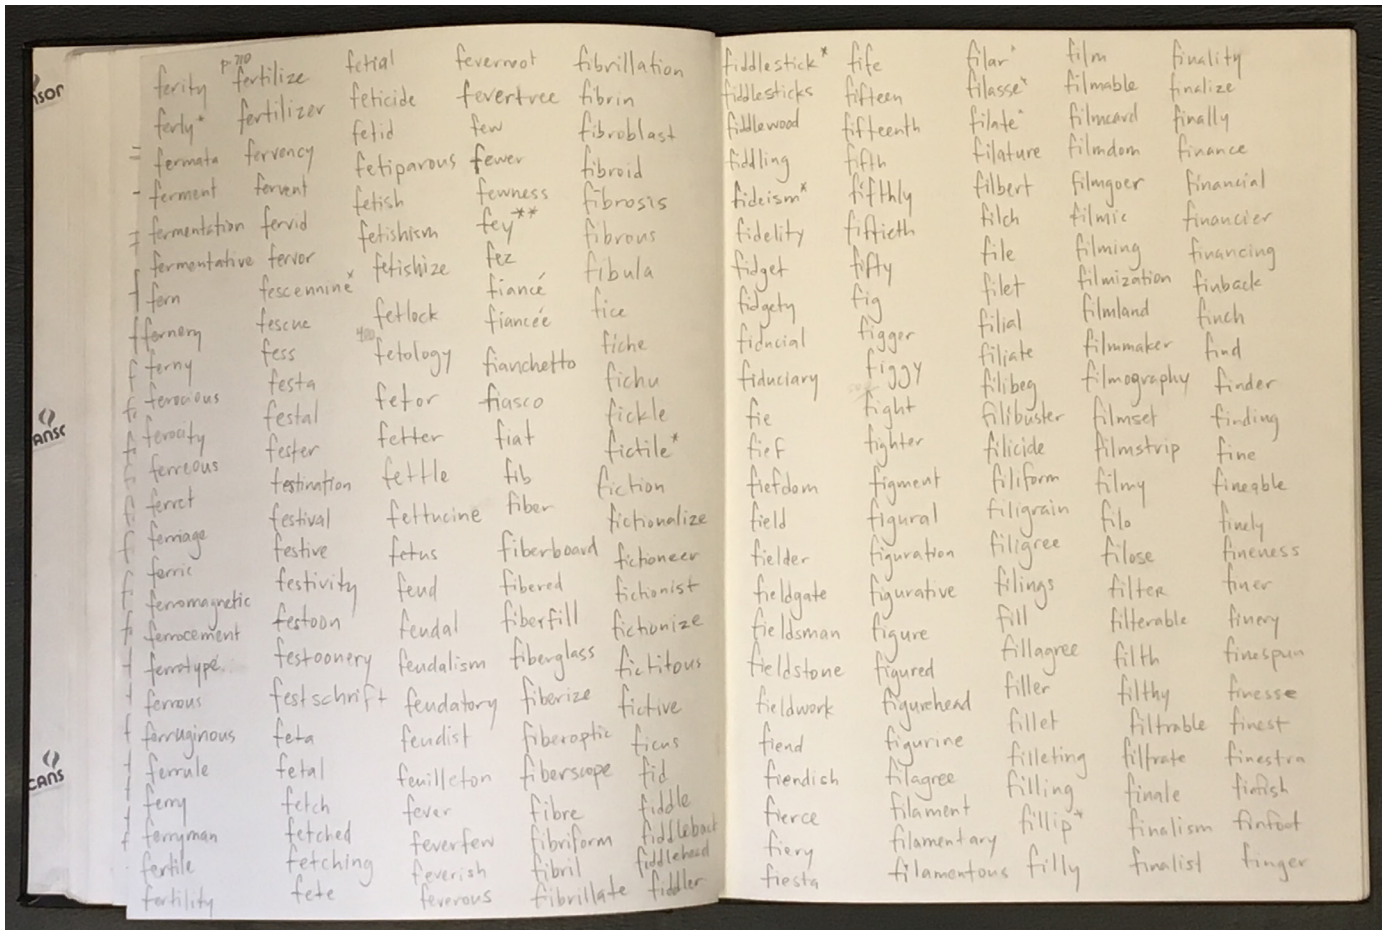 p. 710
ferity
ferly*
fermata
ferment
fermentation
fermentative
fern
fernery
ferny
ferocious
ferocity
ferreous
ferret
ferriage
ferric
ferromagnetic
ferrocement
ferrotype
ferrous
ferruginous
ferrule
ferry
ferryman
fertile
fertility
fertilize
fertilizer
fervency
fervent
fervid
fervor
fescennine*
fescue
fess
festa
festal
fester
festination
festival
festive
festivity
festoon
festoonery
festschrift
feta
fetal
fetch
fetched
fetching
fete
fetial
feticide
fetid
fetiparous
fetish
fetishism
fetishize
fetlock
400
fetology
fetor
fetter
fettle
fettucine
fetus
feud
feudal
feudalism
feudatory
feudist
feuilleton
fever
feverfew
feverish
feverous
feverroot
fevertree
few
fewer
fewness
fey**
fez
fiancé
fiancée
fianchetto
fiasco
fiat
fib
fiber
fiberboard
fibered
fiberfill
fiberglass
fiberize
fiberoptic
fiberscope
fibre
fibriform
fibril
fibrillate
fibrillation
fibrin
fibroblast
fibroid
fibrosis
fibrous
fibula
fice
fiche
fichu
fickle
fictile*
fiction
fictionalize
fictioneer
fictionist
fictionize
fictitous
fictive
ficus
fid
fiddle
fiddleback
fiddlehead
fiddler
fiddlestick*
fiddlesticks
fiddlewood
fiddling
fideism*
fidelity
fidget
fidgety
fiducial
fiduciary
fie
fief
fiefdom
field
fielder
fieldgate
fieldsman
fieldstone
fieldwork
fiend
fiendish
fierce
fiery
fiesta
fife
fifteen
fifteenth
fifth
fifthly
fiftieth
fifty
fig
figger
figgy
fight
fighter
figment
figural
figuration
figurative
figure
figured
figurehead
figurine
filagree
filament
filamentary
filamentous
filar*
filasse*
filate*
filature
filbert
filch
file
filet
filial
filiate
filibeg
filibuster
filicide
filiform
filigrain
filigree
filings
fill
fillagree
filler
fillet
filleting
filling
fillip*
filly
film
filmable
filmcard
filmdom
filmgoer
filmic
filming
filmization
filmland
filmmaker
filmography
filmset
filmstrip
filmy
filo
filose
filter
filterable
filth
filthy
filtrable
filtrate
finale
finalism
finalist
finality
finalize
finally
finance
financial
financier
financing
finback
finch
find
finder
finding
fine
fineable
finely
fineness
finer
finery
finespun
finesse
finest
finestra
finfish
finfoot
finger